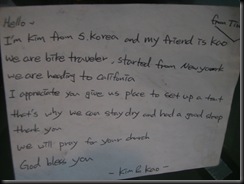 Hello~
from Tim
I'm Kim from S.Korea and my friend is Kao
we are bike traveler, started from Newyork
we are heading to California
I appreciate you give us place to set up a tent
that's why we can stay dry and had a good sleep
thank you
we will pray for your church
God bless you
- Kim & Kao -